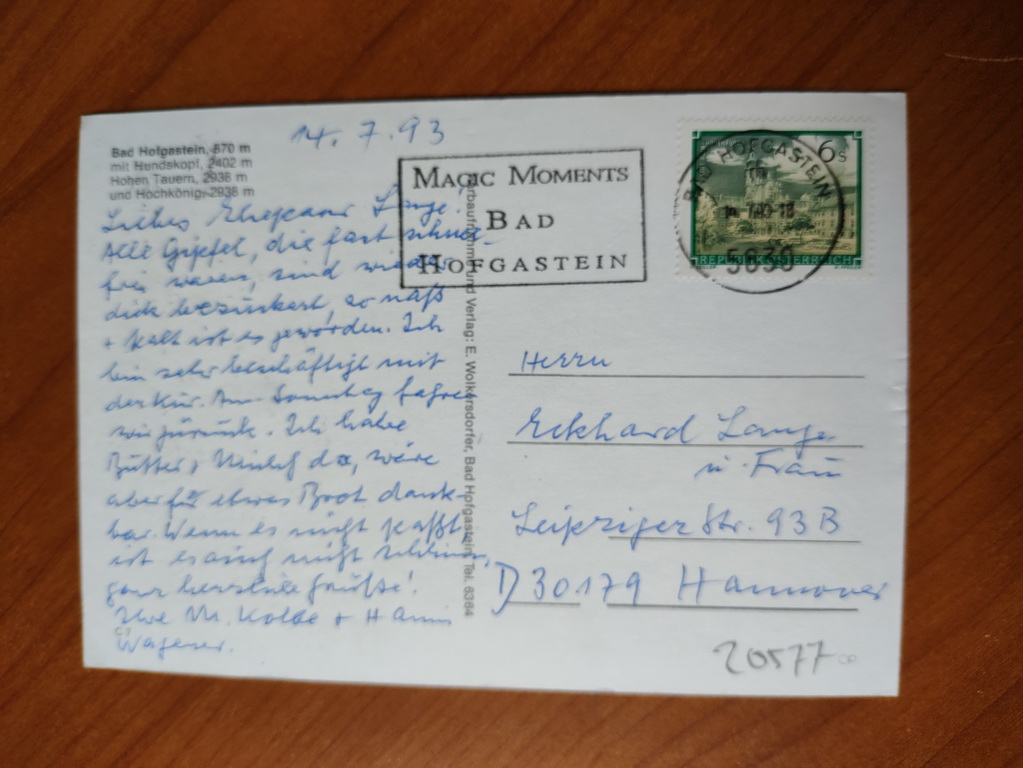 14.7.93
Bad Hofgastein, 870 m
mit Hundskopf, 2402 m
Hohen Tauern, 2938 m
und Hochkönig, 2938 m
Liebes Ehepaar Lange!
Alle Gipfel, die fast schnee-
frei waren, sind wieder
dick bezuckert, so naß
+ kalt ist es geworden. Ich
bin sehr beschäftigt mit
der Kur. Am Sonntag fahren
wir zurück. Ich habe
Butter + Milch da, wäre
aber für etwas Brot dank-
bar. Wenn es nicht paßt,
ist es auch nicht schlimm,
ganz herzliche Grüße!
Ihre M. Kolbe + Hanni
Wagener.
MAGIC MOMENTS
BAD
HOFGASTEIN
6 S
REPUBLIK ÖSTERREICH
BAD HOFGASTEIN
5630
und Verlag: E. Wolkersdorfer, Bad Hofgastein, Tel. 6364
Herrn
Eckhard Lange
u. Frau
Leipziger Str. 93 B
D 30179 Hannover
20577